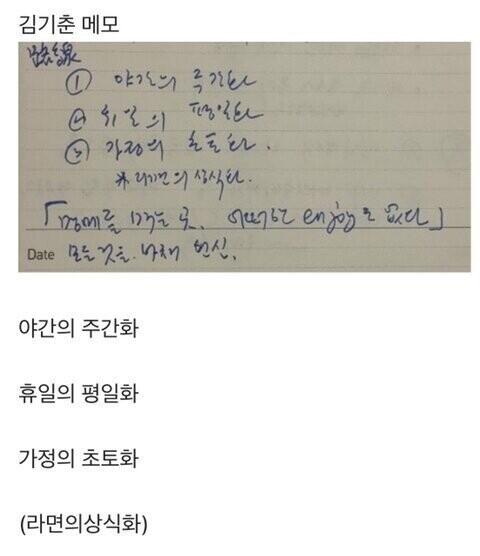 김기춘 메모
① 야간의 주간화
② 휴일의 평일화
③ 가정의 초토화.
※라면의 상식화.
「명예를 먹는 곳. 어떠한 enjoy도 없다」
Date 모든 것을 바쳐 헌신.
야간의 주간화
휴일의 평일화
가정의 초토화
(라면의상식화)